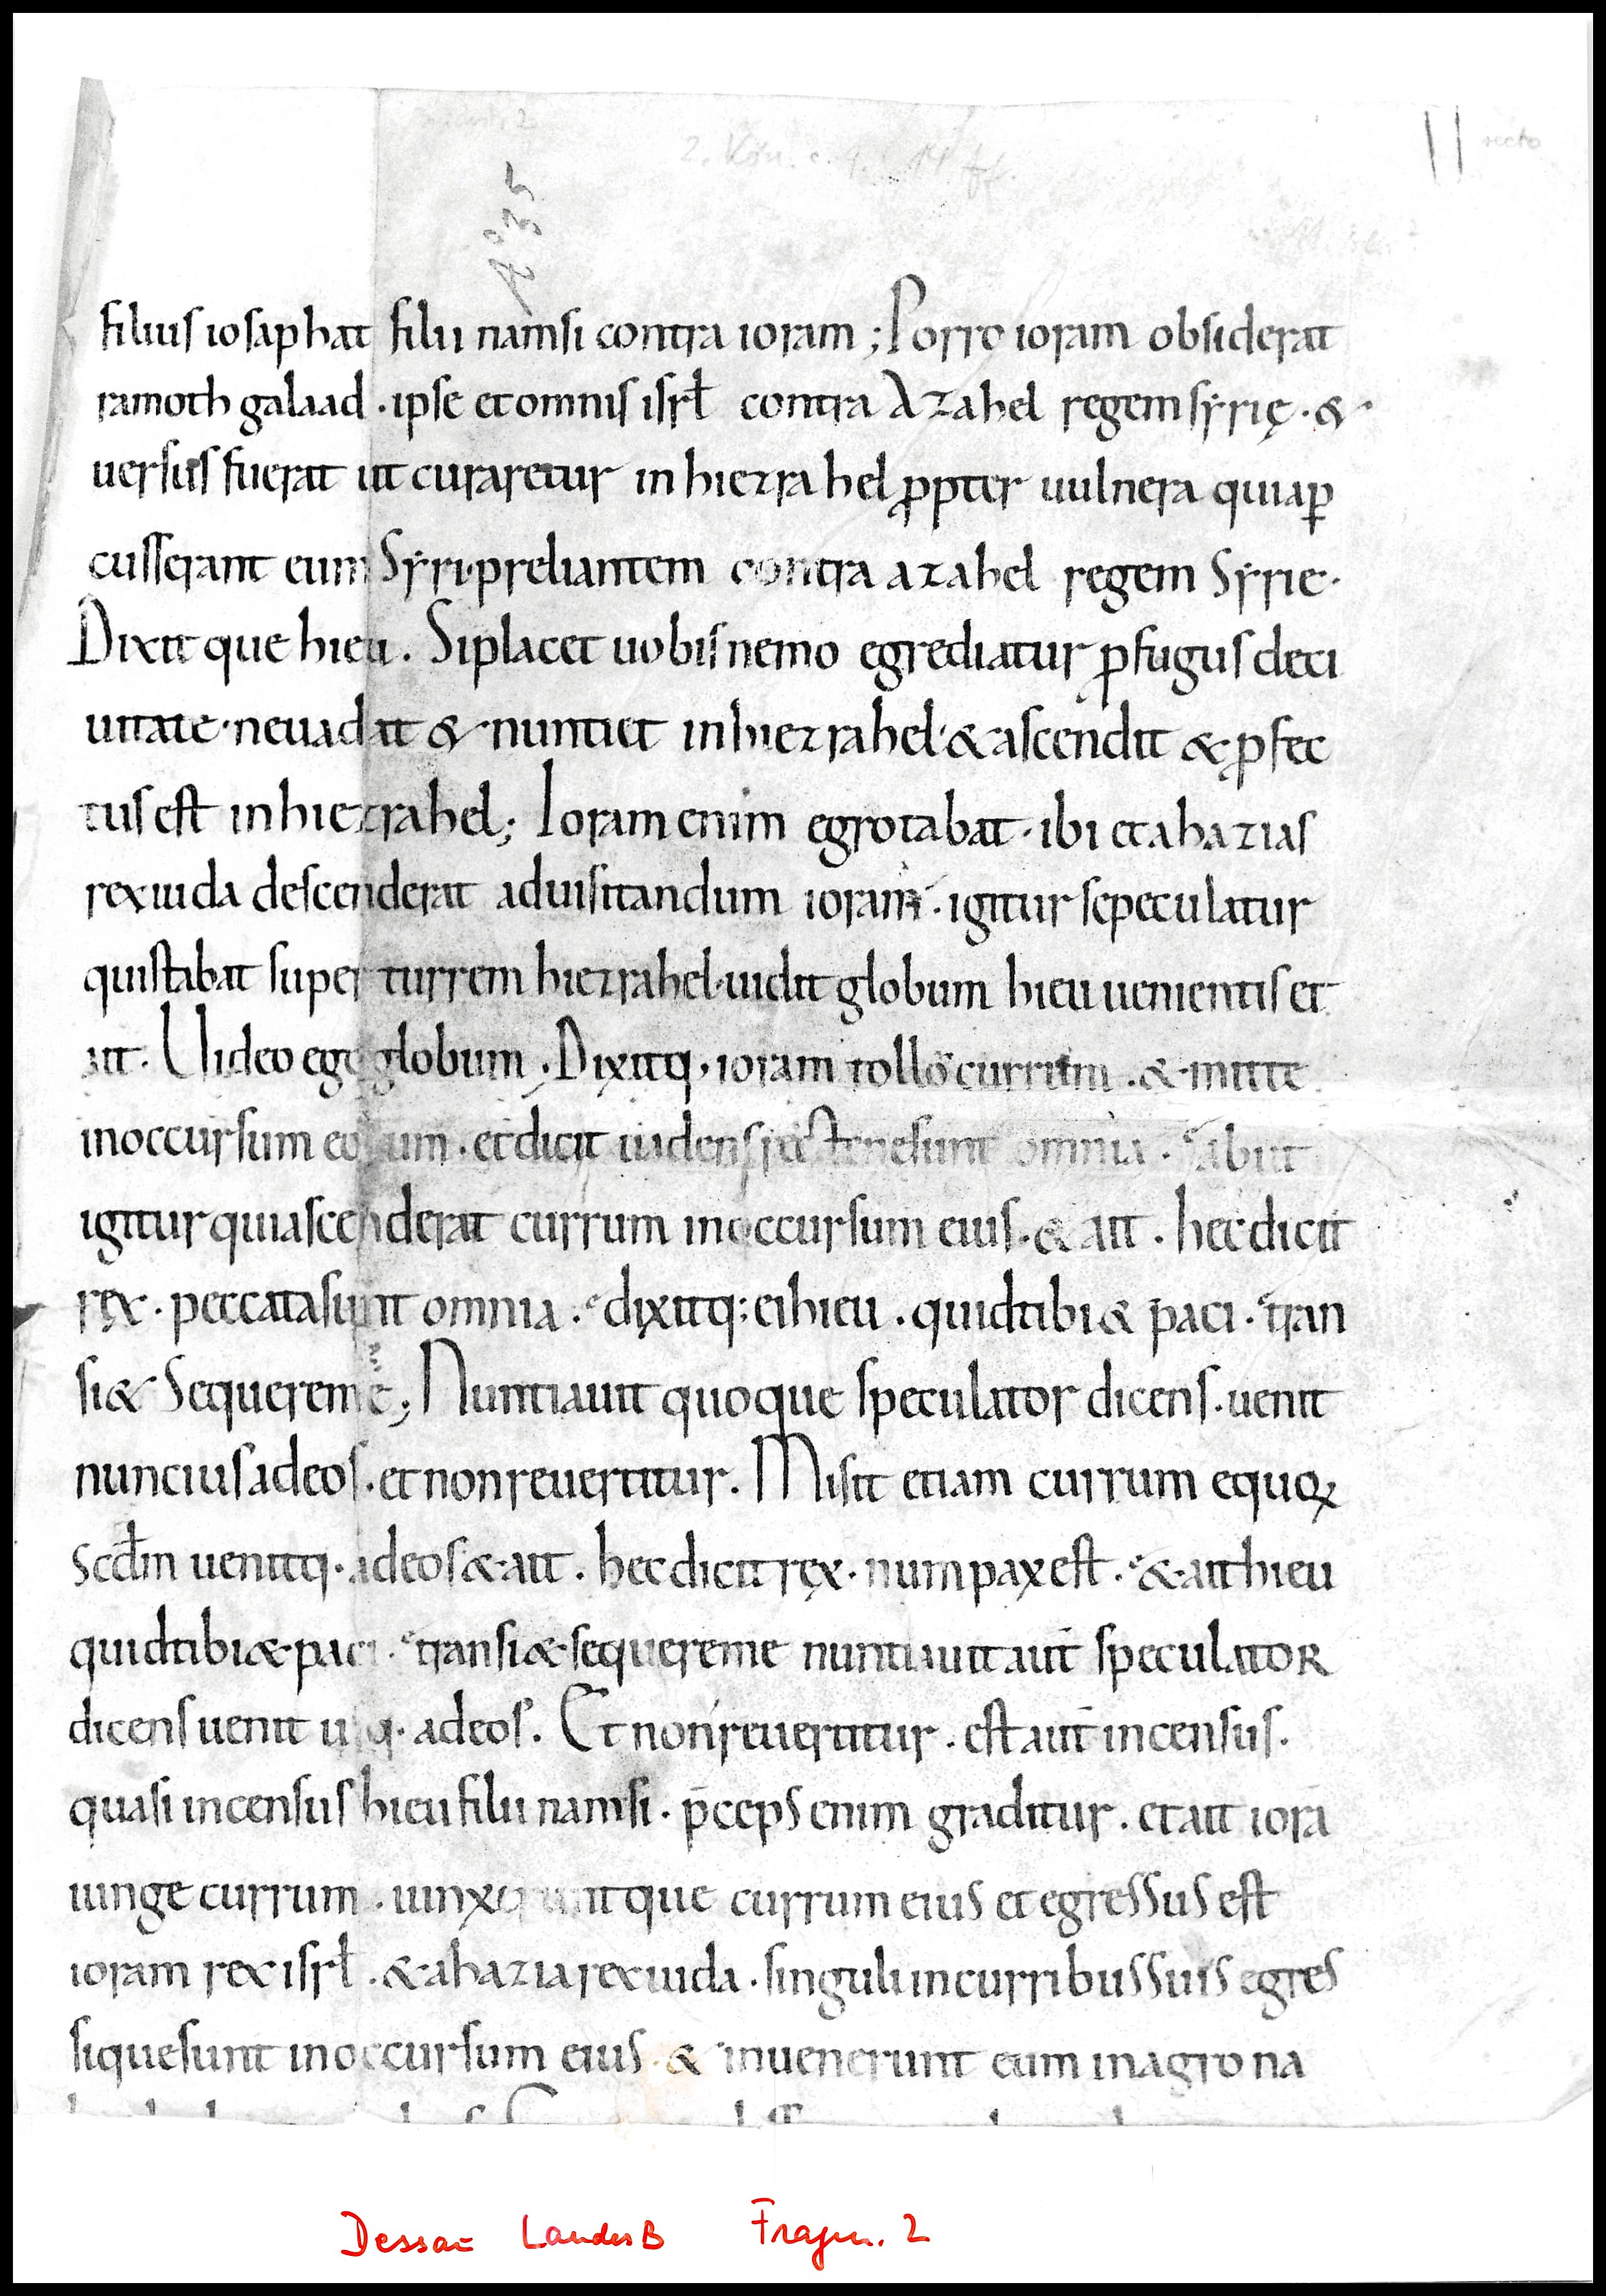 2. Kön. c. 9. 14 ff.
recto
filius iosaphat filii namsi contra ioram ; Porro ioram obsiderat
ramoth galaad · ipse et omnis isrł contra Azahel regem syrię · &
uersus fuerat ut curaretur in hiezrahel ꝓpter uulnera quia ꝑ
cusserant eum Syri · preliantem contra azahel regem Syrie ·
Dixit que hieu . Si placet uobis nemo egrediatur ꝓfugus de ci
uitate · ne uadat & nuntiet in hiezrahel · & ascendit & ꝓfec
tus est in hiezrahel ; Ioram enim egrotabat · ibi et ahazias
rex iuda descenderat ad uisitandum ioram · igitur sepeculatur
qui stabat super turrem hiezrahel · uidit globum hieu uenientis et
ait · Uideo ego globum . Dixitq · ioram tolle currum . & mitte
in occursum eorum . et dicit uadens recte ne sunt omnia . abiit
igitur qui ascenderat currum in occursum eius · & ait . hec dicit
rex · peccata sunt omnia . dixitq : ei hieu . quid tibi & paci . tran
si & Sequere me ; Nuntiauit quoque speculator dicens . uenit
nuncius ad eos . et non reuertitur . Misit etiam currum equoꝝ
Scdm uenitq · ad eos & ait . hec dicit rex · num pax est . & ait hieu
quid tibi & paci . transi & sequere me nuntiauit aut̄ speculatoR
dicens uenit usq · ad eos . Et non reuertitur . est aut̄ incensus .
quasi incensus hieu filii namsi . p̄ceps enim graditur . et ait iorā
iunge currum . iunxeruntque currum eius et egressus est
ioram rex isrł . & ahazia rex iuda . singuli in curribus suis egres
sique sunt in occursum eius · & inuenerunt eum in agro na
Dessau LandesB Fragm. 2